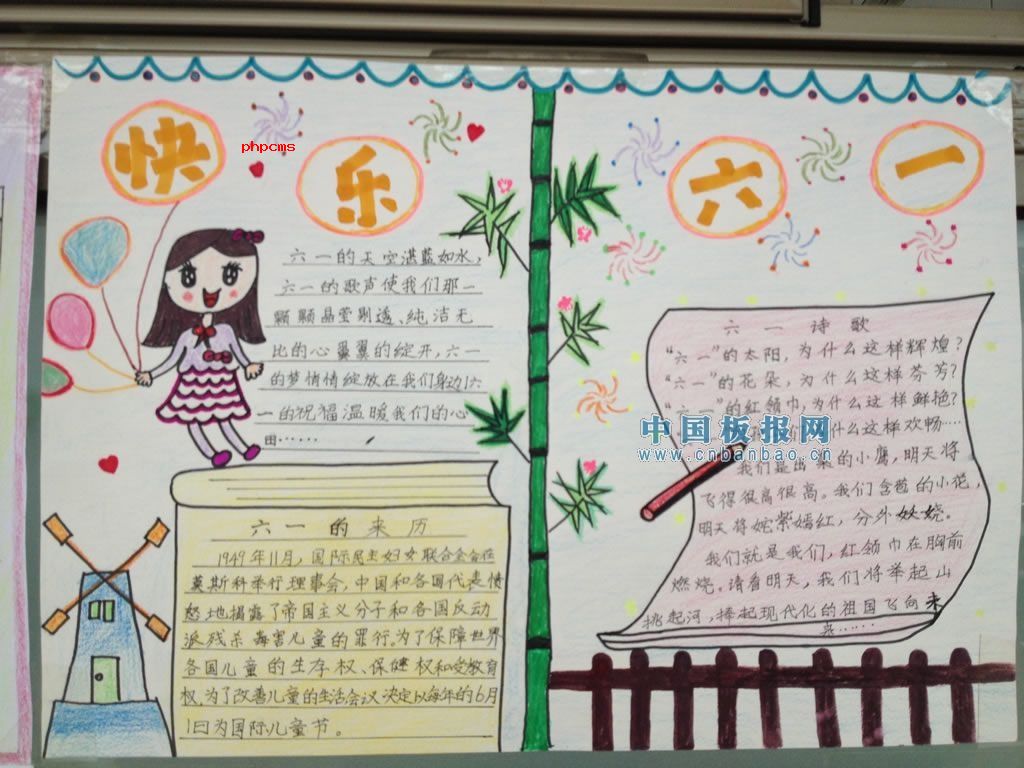 快乐
六一
phpcms
六一的天空湛蓝如水,
六一的歌声使我们那一
颗颗晶莹剔透、纯洁无
比的心翼翼的绽开,六一
的梦情情绽放在我们身边六
一的祝福温暖我们的心
田……
六一的来历
1949年11月,国际民主妇女联合会在
莫斯科举行理事会,中国和各国代表愤
怒地揭露了帝国主义分子和各国反动
派残杀毒害儿童的罪行,为了保障世界
各国儿童的生存权、保健权和受教育
权,为了改善儿童的生活会议决定以每年的6月
1日为国际儿童节。
六一诗歌
“六一”的太阳,为什么这样辉煌?
“六一”的花朵,为什么这样芬芳?
“六一”的红领巾,为什么这样鲜艳?
什么这样欢畅……
我们是出巢的小鹰,明天将
飞得很高很高。我们含苞的小花,
明天将姹紫嫣红,分外妖娆。
我们就是我们,红领巾在胸前
燃烧。请看明天,我们将举起山
挑起河,捧起现代化的祖国飞向未
来……
中国板报网
www.cnbanbao.cn